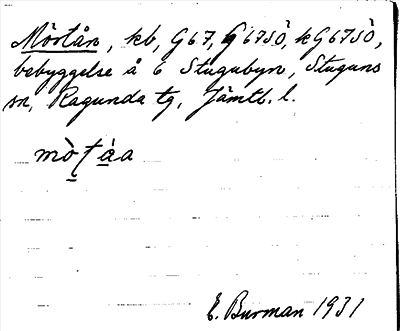 Mörtån, kb, G67, G67SÖ, kG67SÖ,
bebyggelse å 6 Stugubyn, Stuguns
sn, Ragunda tg, Jämtl. l.
E. Burman 1931